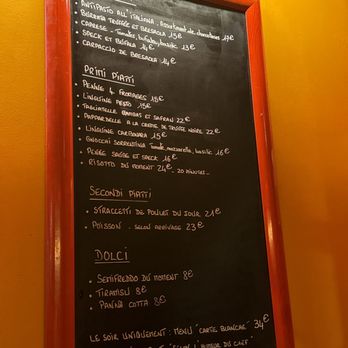 ANTIPASTO ALL'ITALIANA: Assortiment de charcuteries 17€
BURRATA TRUFFÉE ET BRESAOLA 15€
CAPRESE - Tomates, bufala, basilic 13€
SPECK ET BUFALA 14€
CARPACCIO DE BRESAOLA 14€
PRIMI PIATTI
PENNE 4 FROMAGES 15€
LINGUINE PESTO 15€
TAGLIATELLE GAMBAS ET SAFRAN 22€
PAPPARDELLE A LA CREME DE TRUFFE NOIRE 22€
LINGUINE CARBONARA 15€
GNOCCHI SORRENTINA Tomate, mozzarella, basilic 16€
PENNE SAUGE ET SPECK 16€
RISOTTO DU MOMENT 24€ - 20 minutes -
SECONDI PIATTI
STRACCETTI DE POULET DU JOUR 21€
POISSON - SELON ARRIVAGE 23€
DOLCI
SEMIFREDDO DU MOMENT 8€
TIRAMISU 8€
PANNA COTTA 8€
LE SOIR UNIQUEMENT: MENU "CARTE BLANCHE" 34€
L'HUMEUR DU CHEF